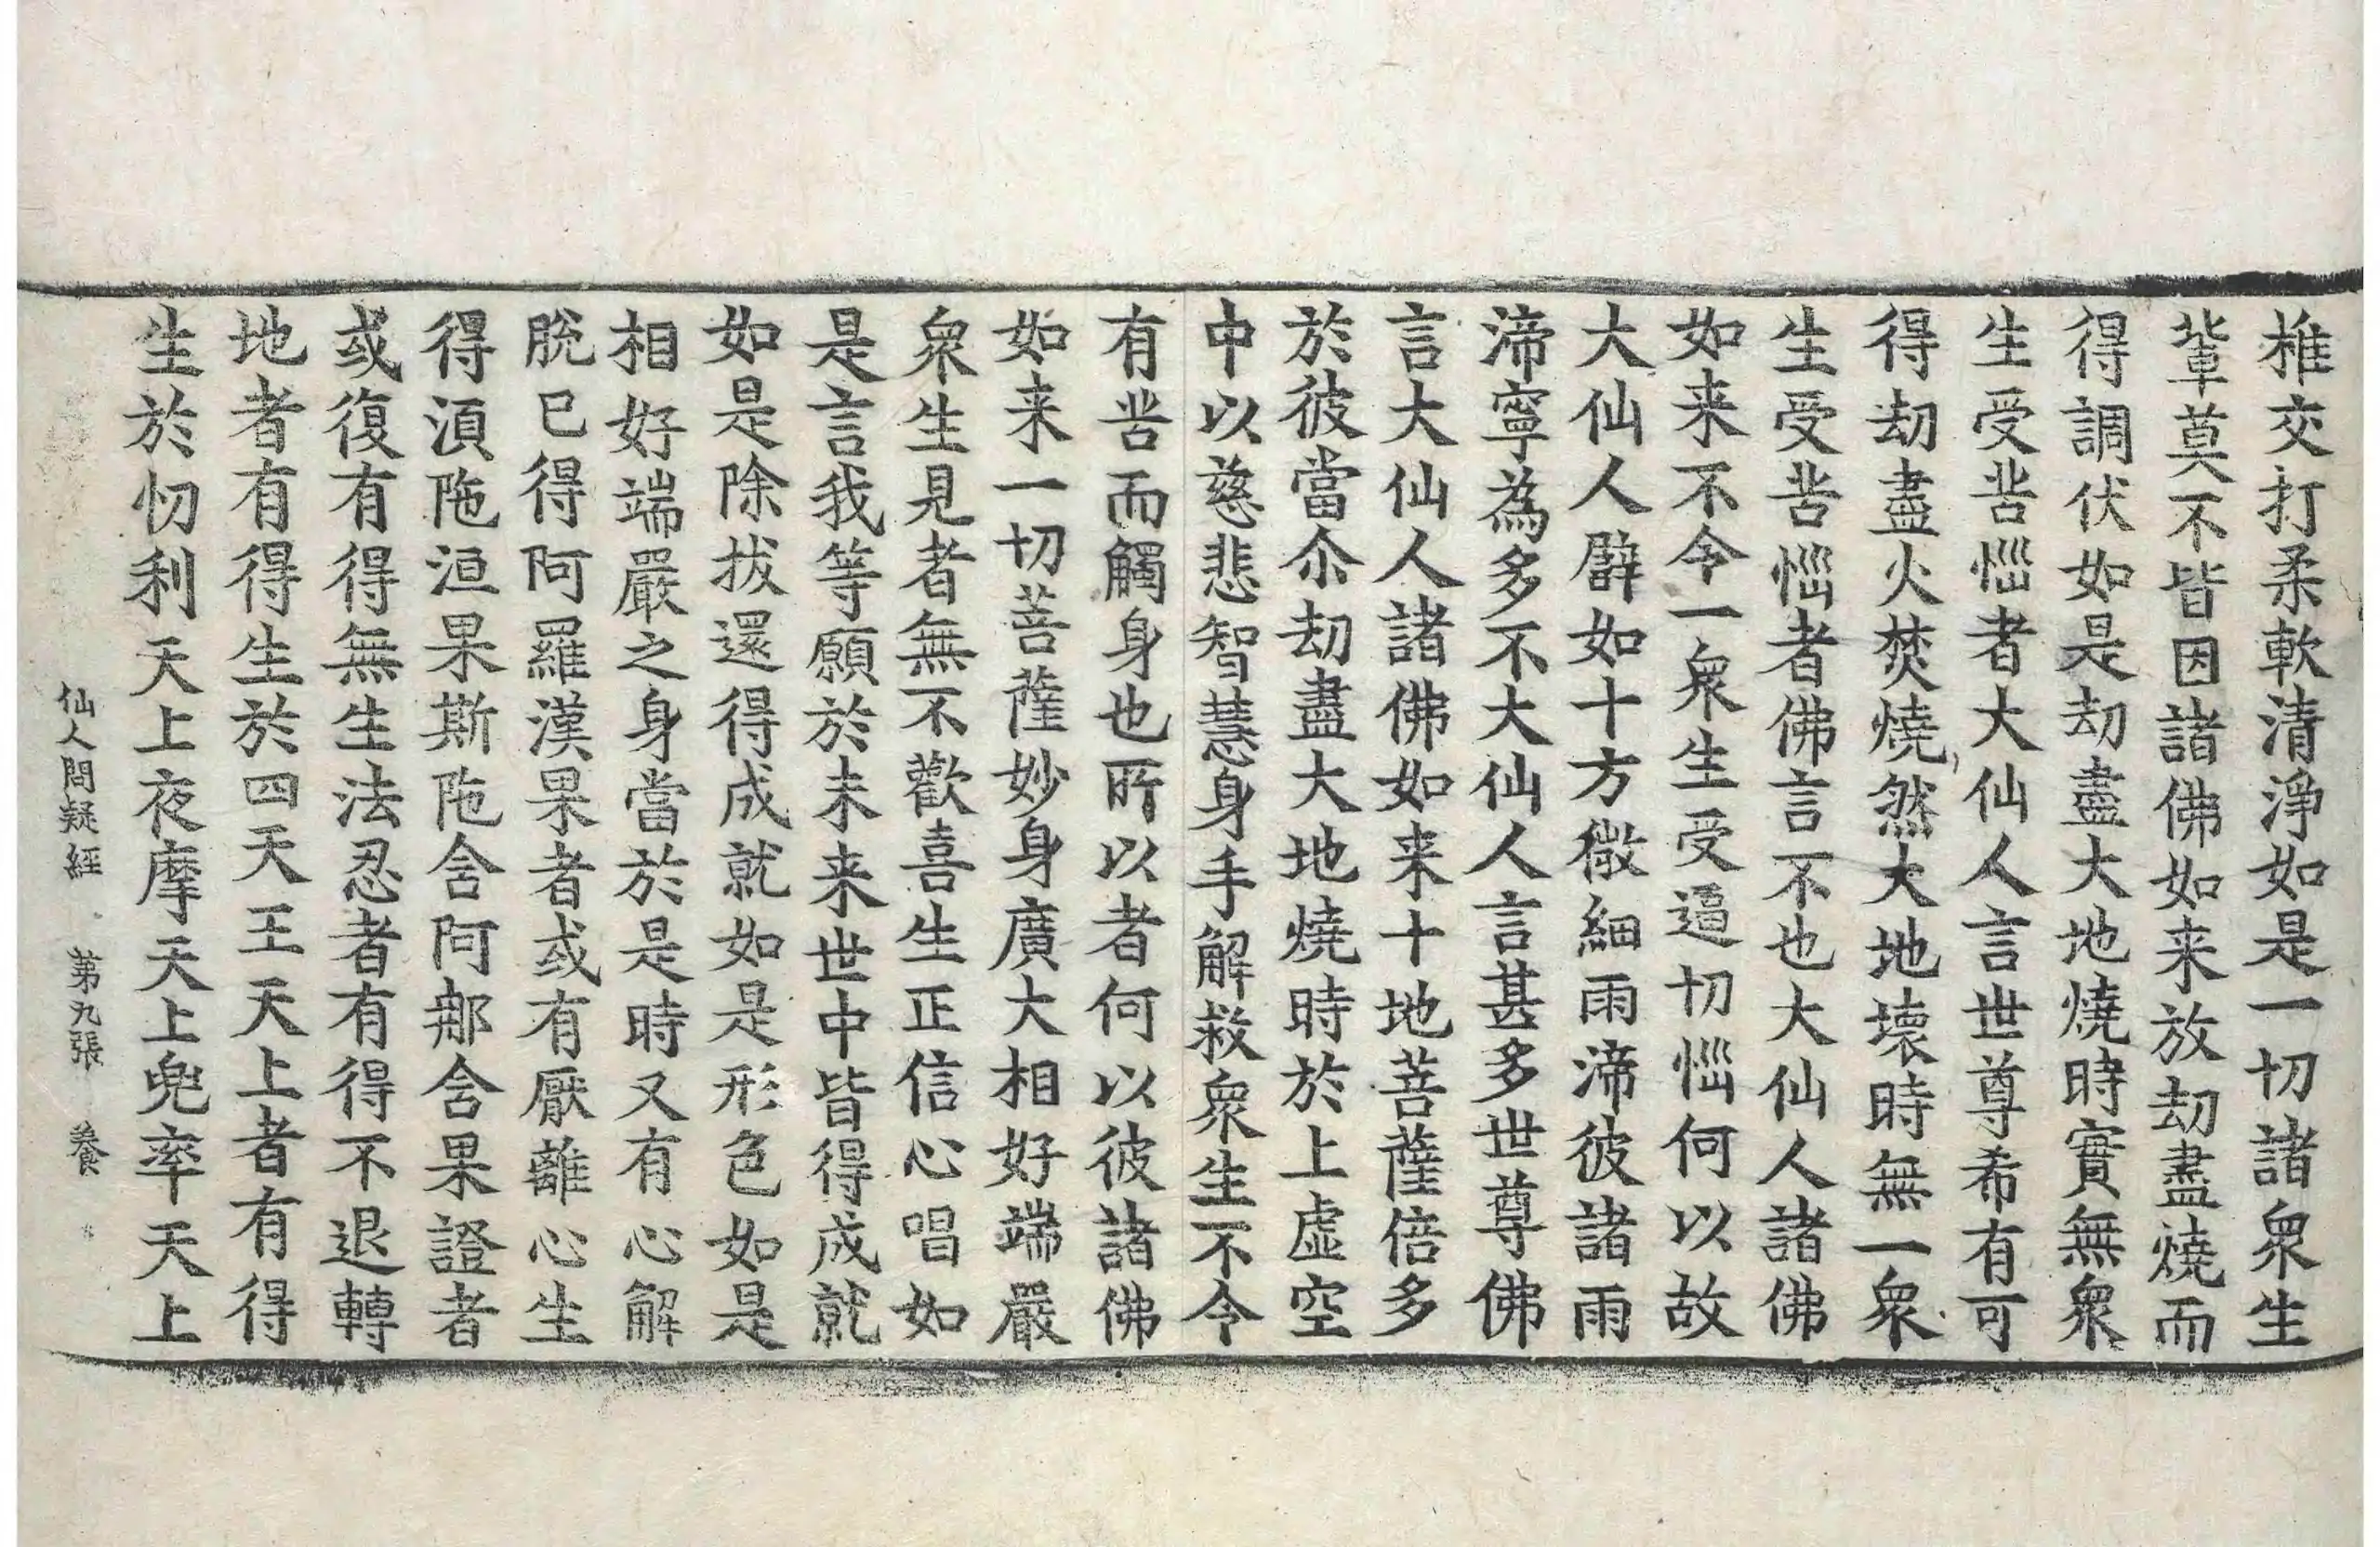 椎交打柔軟清淨如是一切諸衆生
輩莫不皆因諸佛如来放劫盡燒而
得調伏如是劫盡大地燒時實無衆
生受苦惱者大仙人言世尊希有可
得劫盡火焚燒然大地壞時無一衆
生受苦惱者佛言不也大仙人諸佛
如来不令一衆生受逼切惱何以故
大仙人譬如十方微細雨渧彼諸雨
渧寧為多不大仙人言甚多世尊佛
言大仙人諸佛如来十地菩薩倍多
於彼當尒劫盡大地燒時於上虛空
中以慈悲智慧身手解救衆生不令
有苦而觸身也所以者何以彼諸佛
如来一切菩薩妙身廣大相好端嚴
衆生見者無不歡喜生正信心唱如
是言我等願於未来世中皆得成就
如是除拔還得成就如是形色如是
相好端嚴之身當於是時又有心解
脫已得阿羅漢果者或有厭離心生
得湏陁洹果斯陁含阿那含果證者
或復有得無生法忍者有得不退轉
地者有得生於四天王天上者有得
生於忉利天上夜摩天上兜率天上
仙人問疑經 第九張 養